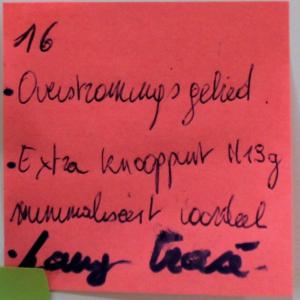 16
• Overstromingsgebied.
• Extra knooppunt N19g
minimaliseert voordeel
• Lang tracé